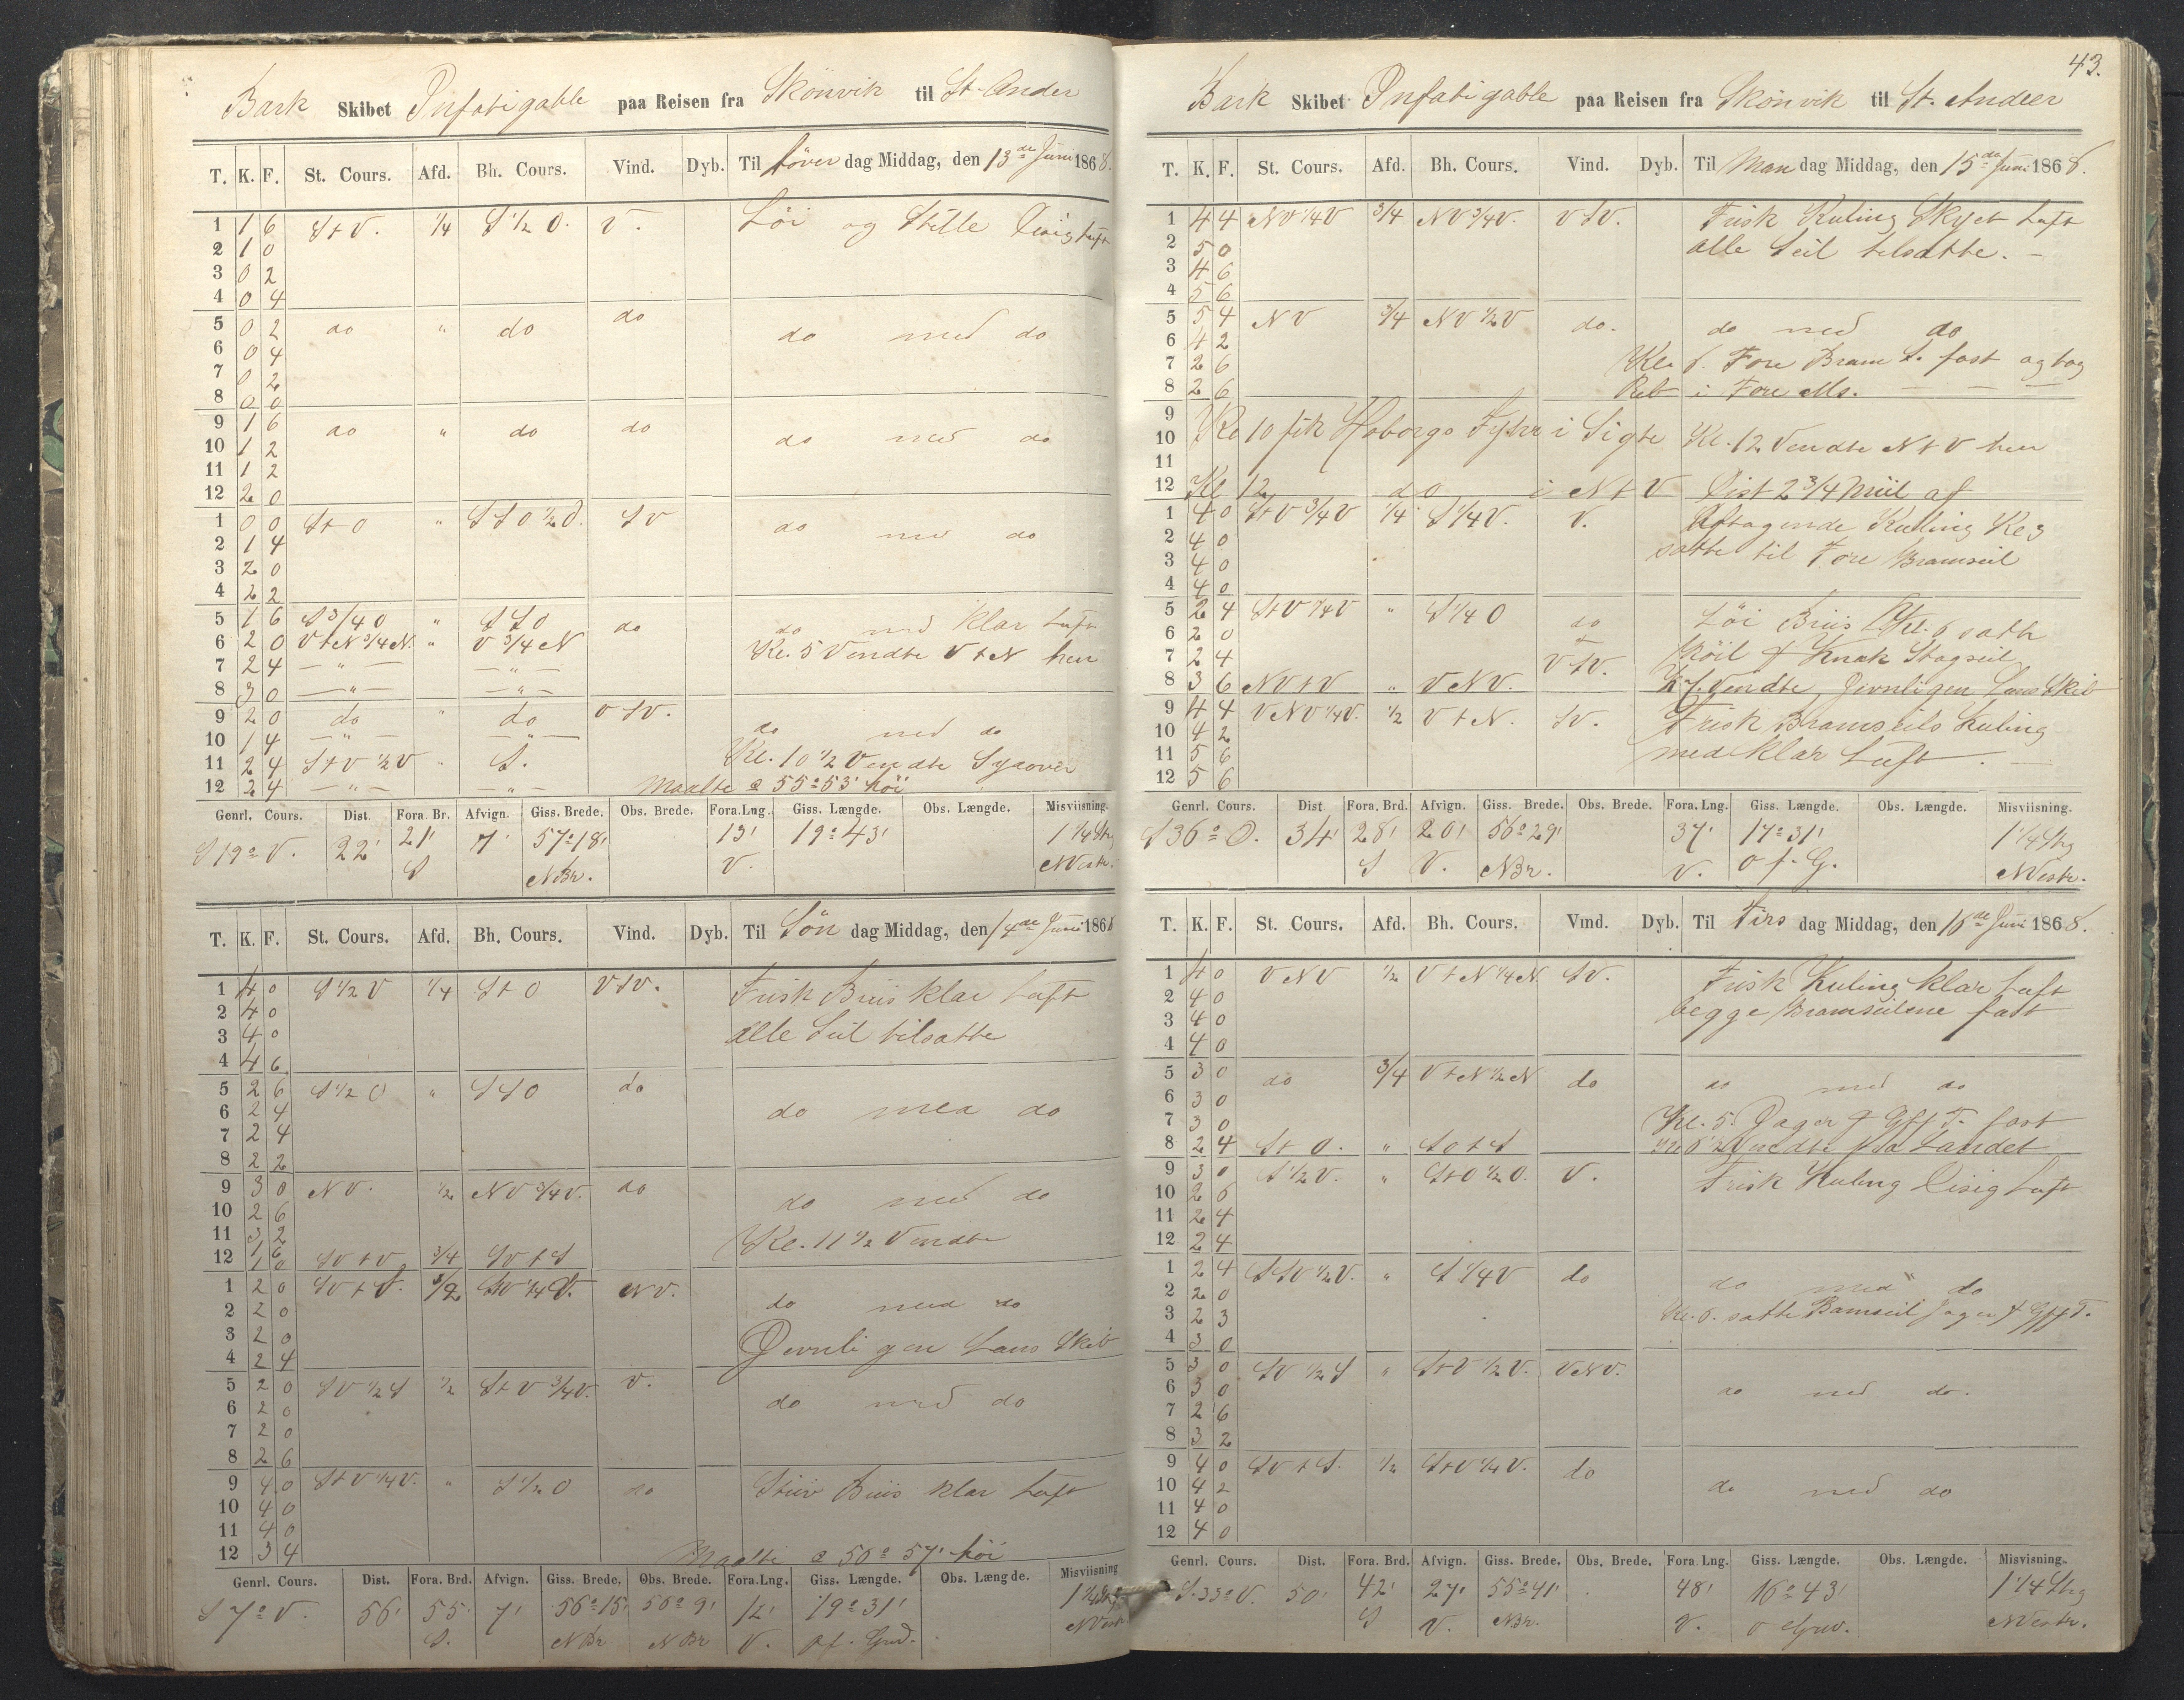 Bark Skibet Infatigable paa Reisen fra Skönvik til St. Ander
T. K. F. St. Cours. Afd. Bh. Cours. Vind. Dyb. Til Löver dag Middag, den 13de Juni 1868.
1 1 6 StV. 1/4 S 1/2 O. V. Löi og Stille Disig Luft
2 1 0
3 0 2
4 0 4
5 0 2 do " do do do med do
6 0 4
7 0 2
8 0 0
9 1 6 do " do do do med do
10 1 2
11 1 2
12 2 0
1 0 0 St O " SSO 1/2 O. SV do med do
2 1 4
3 2 0
4 2 2
5 1 6 S 3/4 O " SSO do do med klar Luft
6 2 0 VtN 3/4 N. " V 3/4 N Kl. 5 Vendte VtN hen
7 2 4 — " — — " —
8 3 0 — " — — " —
9 2 0 do " do VSV. do med do
10 1 4 — " — — " —
11 2 4 StV 1/2 V " S. Kl. 10 1/2 Vendte Syover
12 2 4 — " — — " — Maalte 55° 53' höi
Genrl. Cours. Dist. Fora. Br. Afvign. Giss. Brede. Obs. Brede. Fora. Lng. Giss. Længde. Obs. Længde. Misviisning.
S 19° V. 22' 21' 7' 57° 18' 13' 19° 43' 1 1/4 Strg
S NBr. V. NVestr.
T. K. F. St. Cours. Afd. Bh. Cours. Vind. Dyb. Til Sön dag Middag, den 14de Juni 1868
1 4 0 S 1/2 V 1/4 St O VSV. Frisk Briis klar Luft
2 4 0
3 4 0 alle Seil tilsatte
4 4 6
5 2 6 S 1/2 O " SSO do do med do
6 2 4
7 2 4
8 2 2
9 3 0 NV. 1/2 NV 3/4 V. do do med do
10 2 6
11 3 2 Kl. 11 1/2 Vendte
12 1 6 1 0 SV t V 3/4 SV t S
1 2 0 SV t S. 1/2 SV 1/4 V. NV. do med do
2 2 0
3 2 0 Jevnligen Lens Skib
4 2 4
5 2 0 SV 1/2 S 1/2 StV 3/4 V. V. do med do
6 2 0
7 2 0
8 2 6
9 4 0 StV 1/4 V. " S 1/2 O do Stiv Briis klar Luft
10 4 0
11 4 0
12 3 4 Maalte 56° 57' höi
Genrl. Cours. Dist. Fora. Brd. Afvign. Giss. Brede. Obs. Brede. Fora. Lng. Giss. Længde. Obs. Længde. Misviisning
S 7° V. 56' 55' 7' 56° 15' 56° 9' 12' 19° 31' 1 1/4 Strg
S. NBr NBr V. O f. Grv. NVestr
43.
Bark Skibet Infatigable paa Reisen fra Skönvik til St. Andeer
T. K. F. St. Cours. Afd. Bh. Cours. Vind. Dyb. Til Man dag Middag, den 15de Juni 1868.
1 4 4 NV 1/4 V 3/4 NV 3/4 V. VSV. Frisk Kuling Skyet Luft
2 5 0 alle Seil tilsatte. —
3 4 6
4 5 6
5 5 4 NV 3/4 NV 1/2 V do. do med do
6 4 2
7 2 6 Kl. 6. Fore Bram S. fast og tog
8 2 6 Reb i Fore Ms. — — —
9
10 Kl 10 fik Hoborgs Fyhr i Sigte Kl. 12 Vendte NtV hen
11
12 Kl 12 do i NtV Dist 2 3/4 Miil af
1 4 0 StV 3/4 V 1/4 S 1/4 V. V. Aftagende Kuling Kl 3
2 4 0 satte til Fore Bramseil
3 4 0
4 4 0
5 2 4 StV 1/4 V " S 1/4 O do Löi Briis Kl. 6 satte
6 2 0
7 2 4 VSV. Röil & Knæk Stagseil
8 3 6 NVtV " VNV. Kl 7. Vendte, Jevnligen Lens Skib
9 4 4 VNV 1/4 V. 1/2 VtN. SV. Frisk Bramseils Kuling
10 4 2
11 5 6 med klar Luft. —
12 5 6
Genrl. Cours. Dist. Fora. Brd. Afvign. Giss. Brede. Obs. Brede. Fora. Lng. Giss. Længde. Obs. Længde. Misviisning.
S 36° O. 34' 28' 20' 56° 29' 37' 17° 31' 1 1/4 Strg
S V. NBr. V. O f. G. NVestr.
T. K. F. St. Cours. Afd. Bh. Cours. Vind. Dyb. Til Tirs dag Middag, den 16de Juni 1868.
1 4 0 VNV 1/2 VtN 1/4 N. SV. Frisk Kuling klar Luft
2 4 0
3 4 0 begge Bramseilene fast
4 4 0
5 3 0 do 3/4 VtN 1/2 N do do med do
6 3 0
7 3 0 Kl. 5. Jager & Gff T. fast
8 2 4 St O. " SOtS Vendte fra Landet
9 3 0 S 1/2 V. " StO 1/2 O. V. Frisk Kuling Disig Luft
10 2 6
11 2 4
12 2 4
1 2 4 SSV 1/2 V. " S 1/4 V do do med do
2 2 0
3 2 3 satte Bamseil Jager & Gff T.
4 3 0
5 3 0 SV 1/2 S " StV 1/2 V. VNV. do med do.
6 3 0
7 2 6
8 3 2
9 4 0 SVtS. 1/2 StV 1/4 V. do do med do
10 4 2
11 4 0
12 4 0
Genrl. Cours. Dist. Fora. Brd. Afvign. Giss. Brede. Obs. Brede. Fora. Lng. Giss. Længde. Obs. Længde. Misvisning.
S. 33° V. 50' 42' 27' 55° 41' 48' 16° 43' 1 1/4 Strg
S V. NBr. V. O Grv. NVestr.